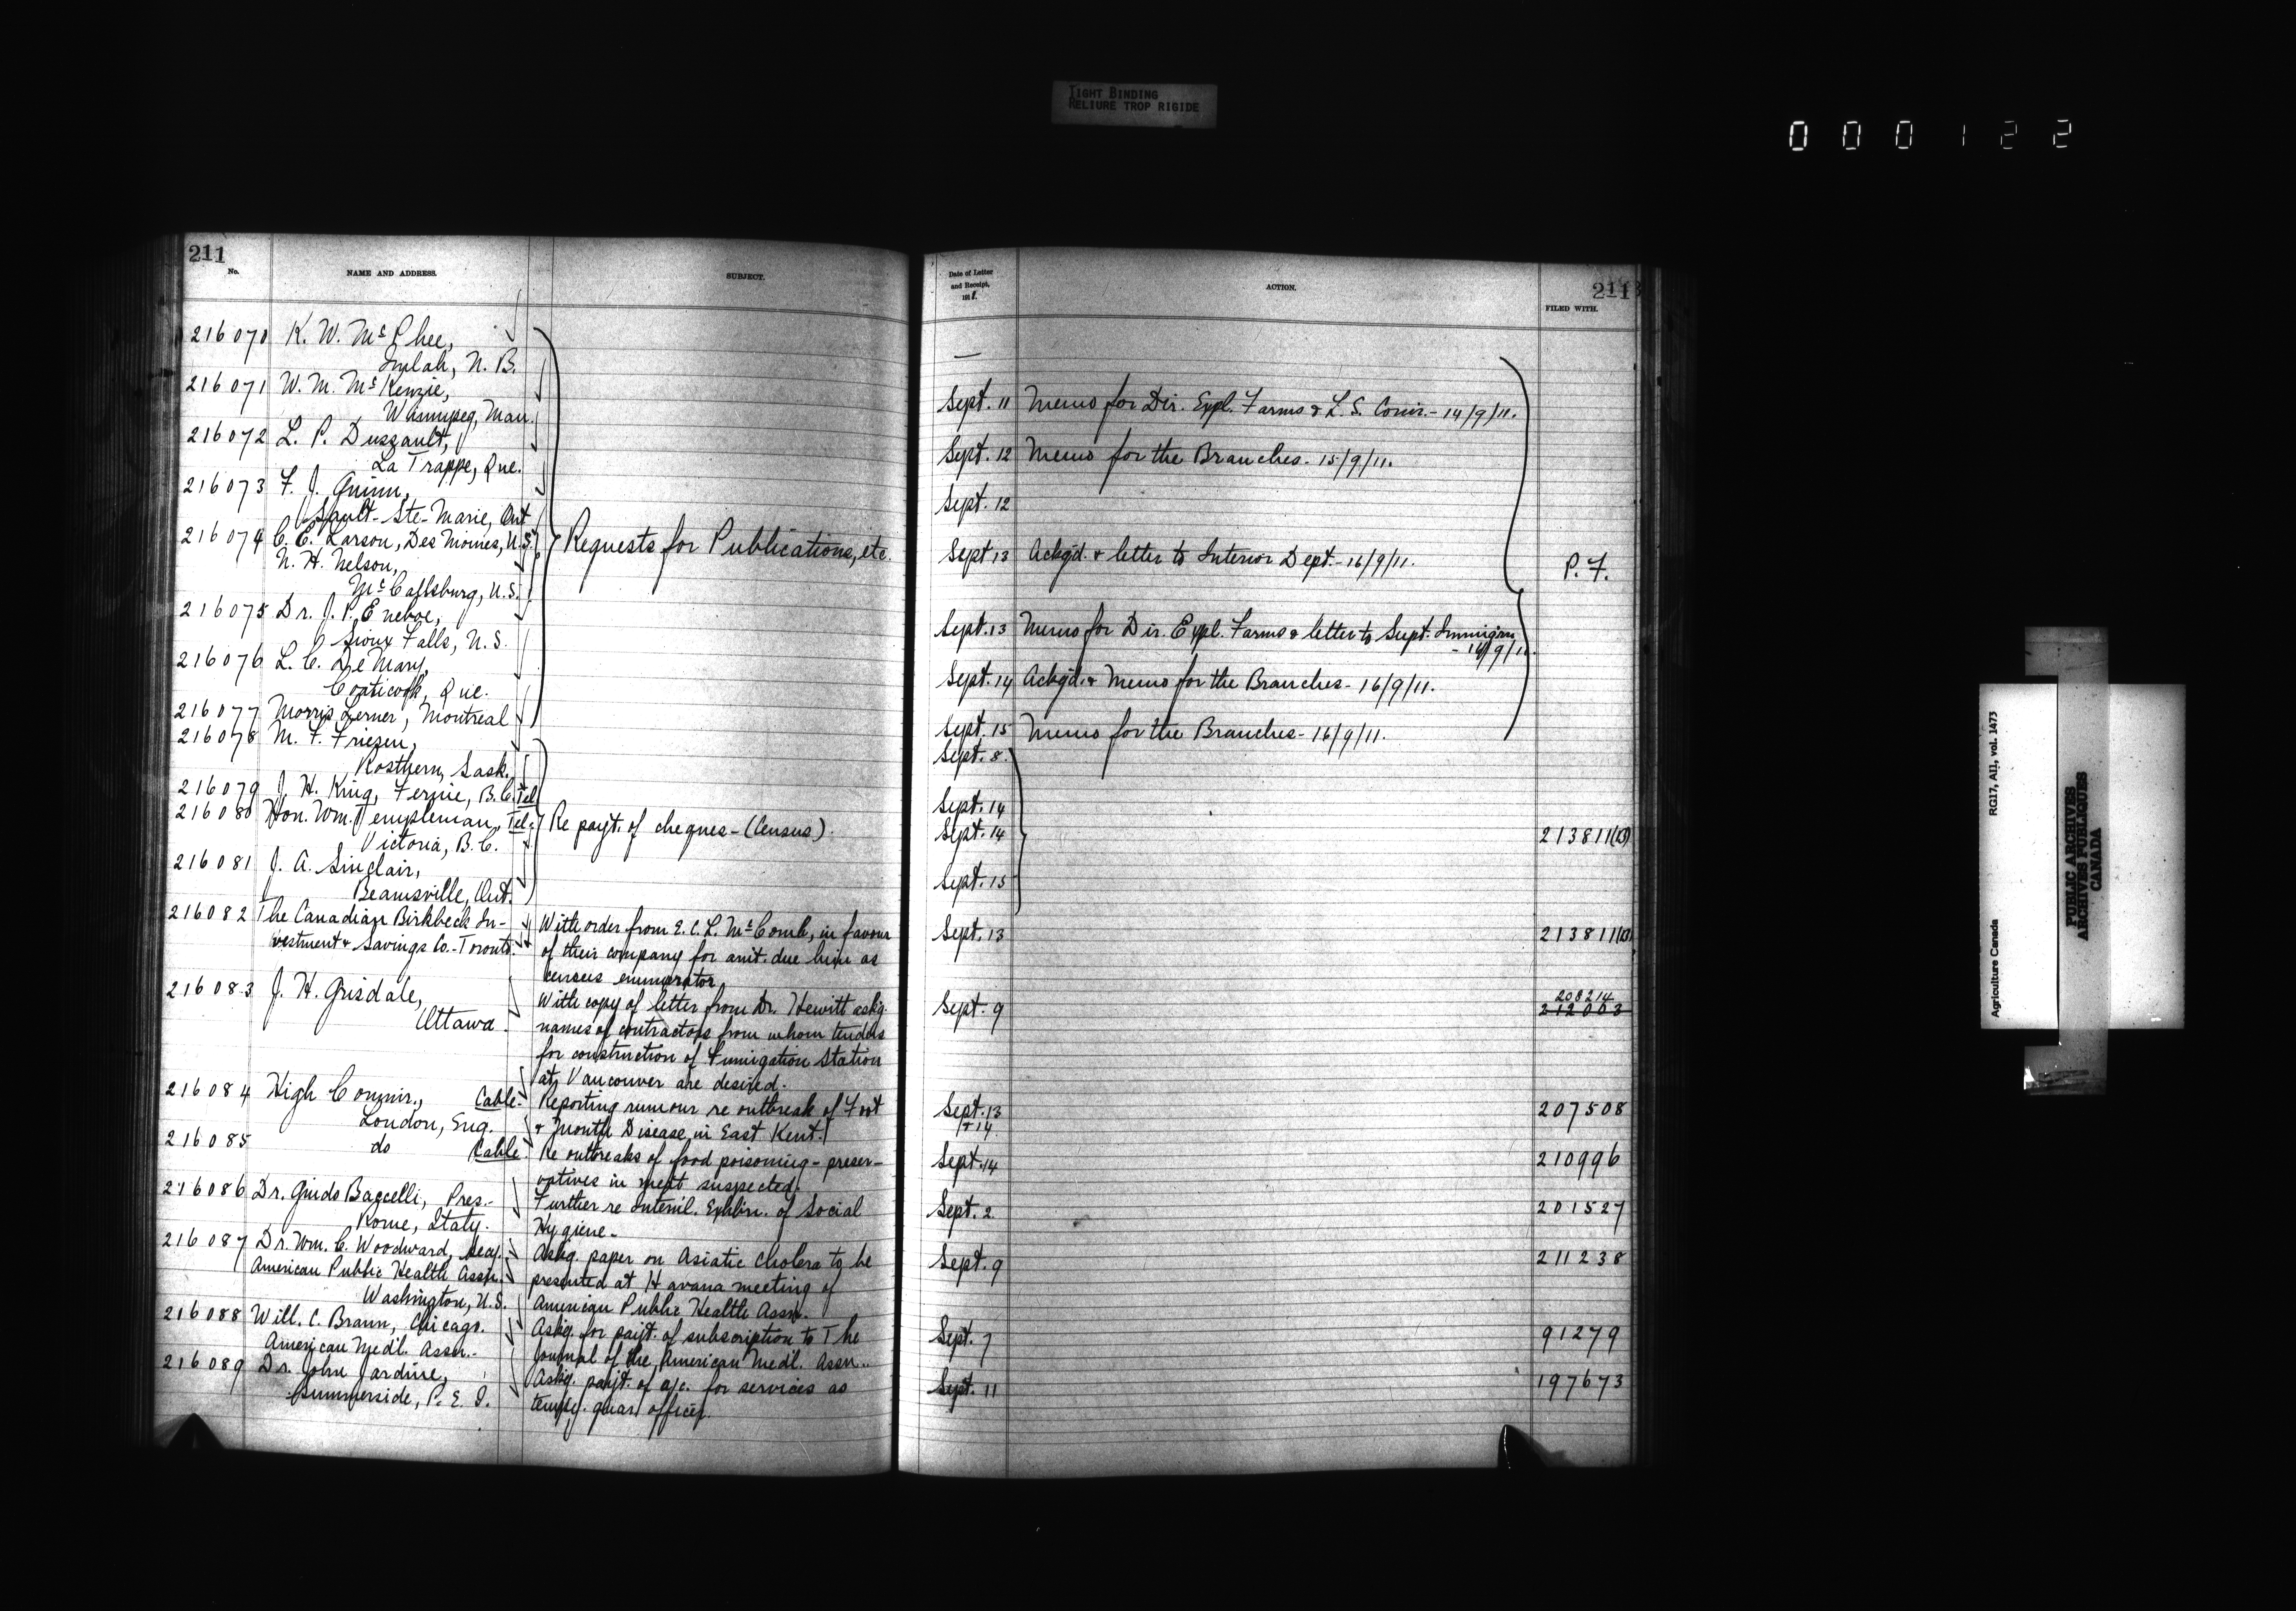 TIGHT BINDING
RELIURE TROP RIGIDE
000122
211
No.
NAME AND ADDRESS.
SUBJECT.
216070 K. W. McPhee,
N. B.
216071 W. M. McKenzie,
Winnipeg, Man.
216072 L. P. Dussault,
La Trappe, Que.
216073 F. J. Quinn,
Sault-Ste-Marie, Ont
216074 C. E. Larson, Des Moines, U.S.
N. H. Nelson,
McCallsburg, U.S.
Requests for Publications, etc.
216075 Dr. J. P. Eneboe,
Sioux Falls, U.S.
216076 L. C. De Mary,
Coaticook, Que.
216077 Morris Lerner, Montreal
216078 M. F. Friesen,
Rosthern, Sask.
216079 J. H. King, Fernie, B.C. Tel
216080 Hon. Wm. Templeman, Tel.
Victoria, B.C.
Re payt. of cheques - (Census).
216081 J. A. Sinclair,
Beamsville, Ont.
216082 The Canadian Birkbeck In-
vestment & Savings Co. - Toronto.
With order from E. C. L. McComb, in favour
of their company for amt. due him as
census enumerator.
216083 J. H. Grisdale,
Ottawa.
With copy of letter from Dr. Hewitt askg.
names of contractors from whom tenders
for construction of Fumigation Station
at Vancouver are desired.
216084 High Commr., Cable.
London, Eng.
Reporting rumour re outbreak of Foot
& Mouth Disease in East Kent.
216085 do Cable.
Re outbreaks of food poisoning - preser-
vatives in meat suspected.
216086 Dr. Guido Baccelli, Pres.-
Rome, Italy.
Further re Internl. Exhbn. of Social
Hygiene -
216087 Dr. Wm. C. Woodward, Secy.
American Public Health Assn.
Washington, U.S.
Askg. paper on Asiatic Cholera to be
presented at Havana meeting of
American Public Health Assn.
216088 Will. C. Braun, Chicago.
American Medl. Assn.-
Askg. for payt. of subscription to The
Journal of the American Medl. Assn..
216089 Dr. John Jardine,
Summerside, P. E. I.
Askg. payt. of a/c. for services as
tempy. quar. officer.
Date of Letter
and Receipt,
1911.
ACTION.
211
FILED WITH.
—
Sept. 11 Memo for Dir. Expl. Farms & L. S. Comr. - 14/9/11.
Sept. 12 Memo for the Branches - 15/9/11.
Sept. 12
Sept 13 Ackgd. & letter to Interior Dept. - 16/9/11.
P. F.
Sept. 13 Memo for Dir. Expl. Farms & letter to Supt. Immigrn
- 16/9/11.
Sept. 14 Ackgd. & Memo for the Branches - 16/9/11.
Sept. 15 Memo for the Branches - 16/9/11.
Sept. 8.
Sept. 14
Sept. 14 213811(13)
Sept. 15
Sept. 13 213811(13)
Sept. 9 208214
212003
Sept. 13
& 14. 207508
Sept. 14 210996
Sept. 2 201527
Sept. 9 211238
Sept. 7 91279
Sept. 11 197673
Agriculture Canada RG17, AII, vol. 1473
PUBLIC ARCHIVES
ARCHIVES PUBLIQUES
CANADA